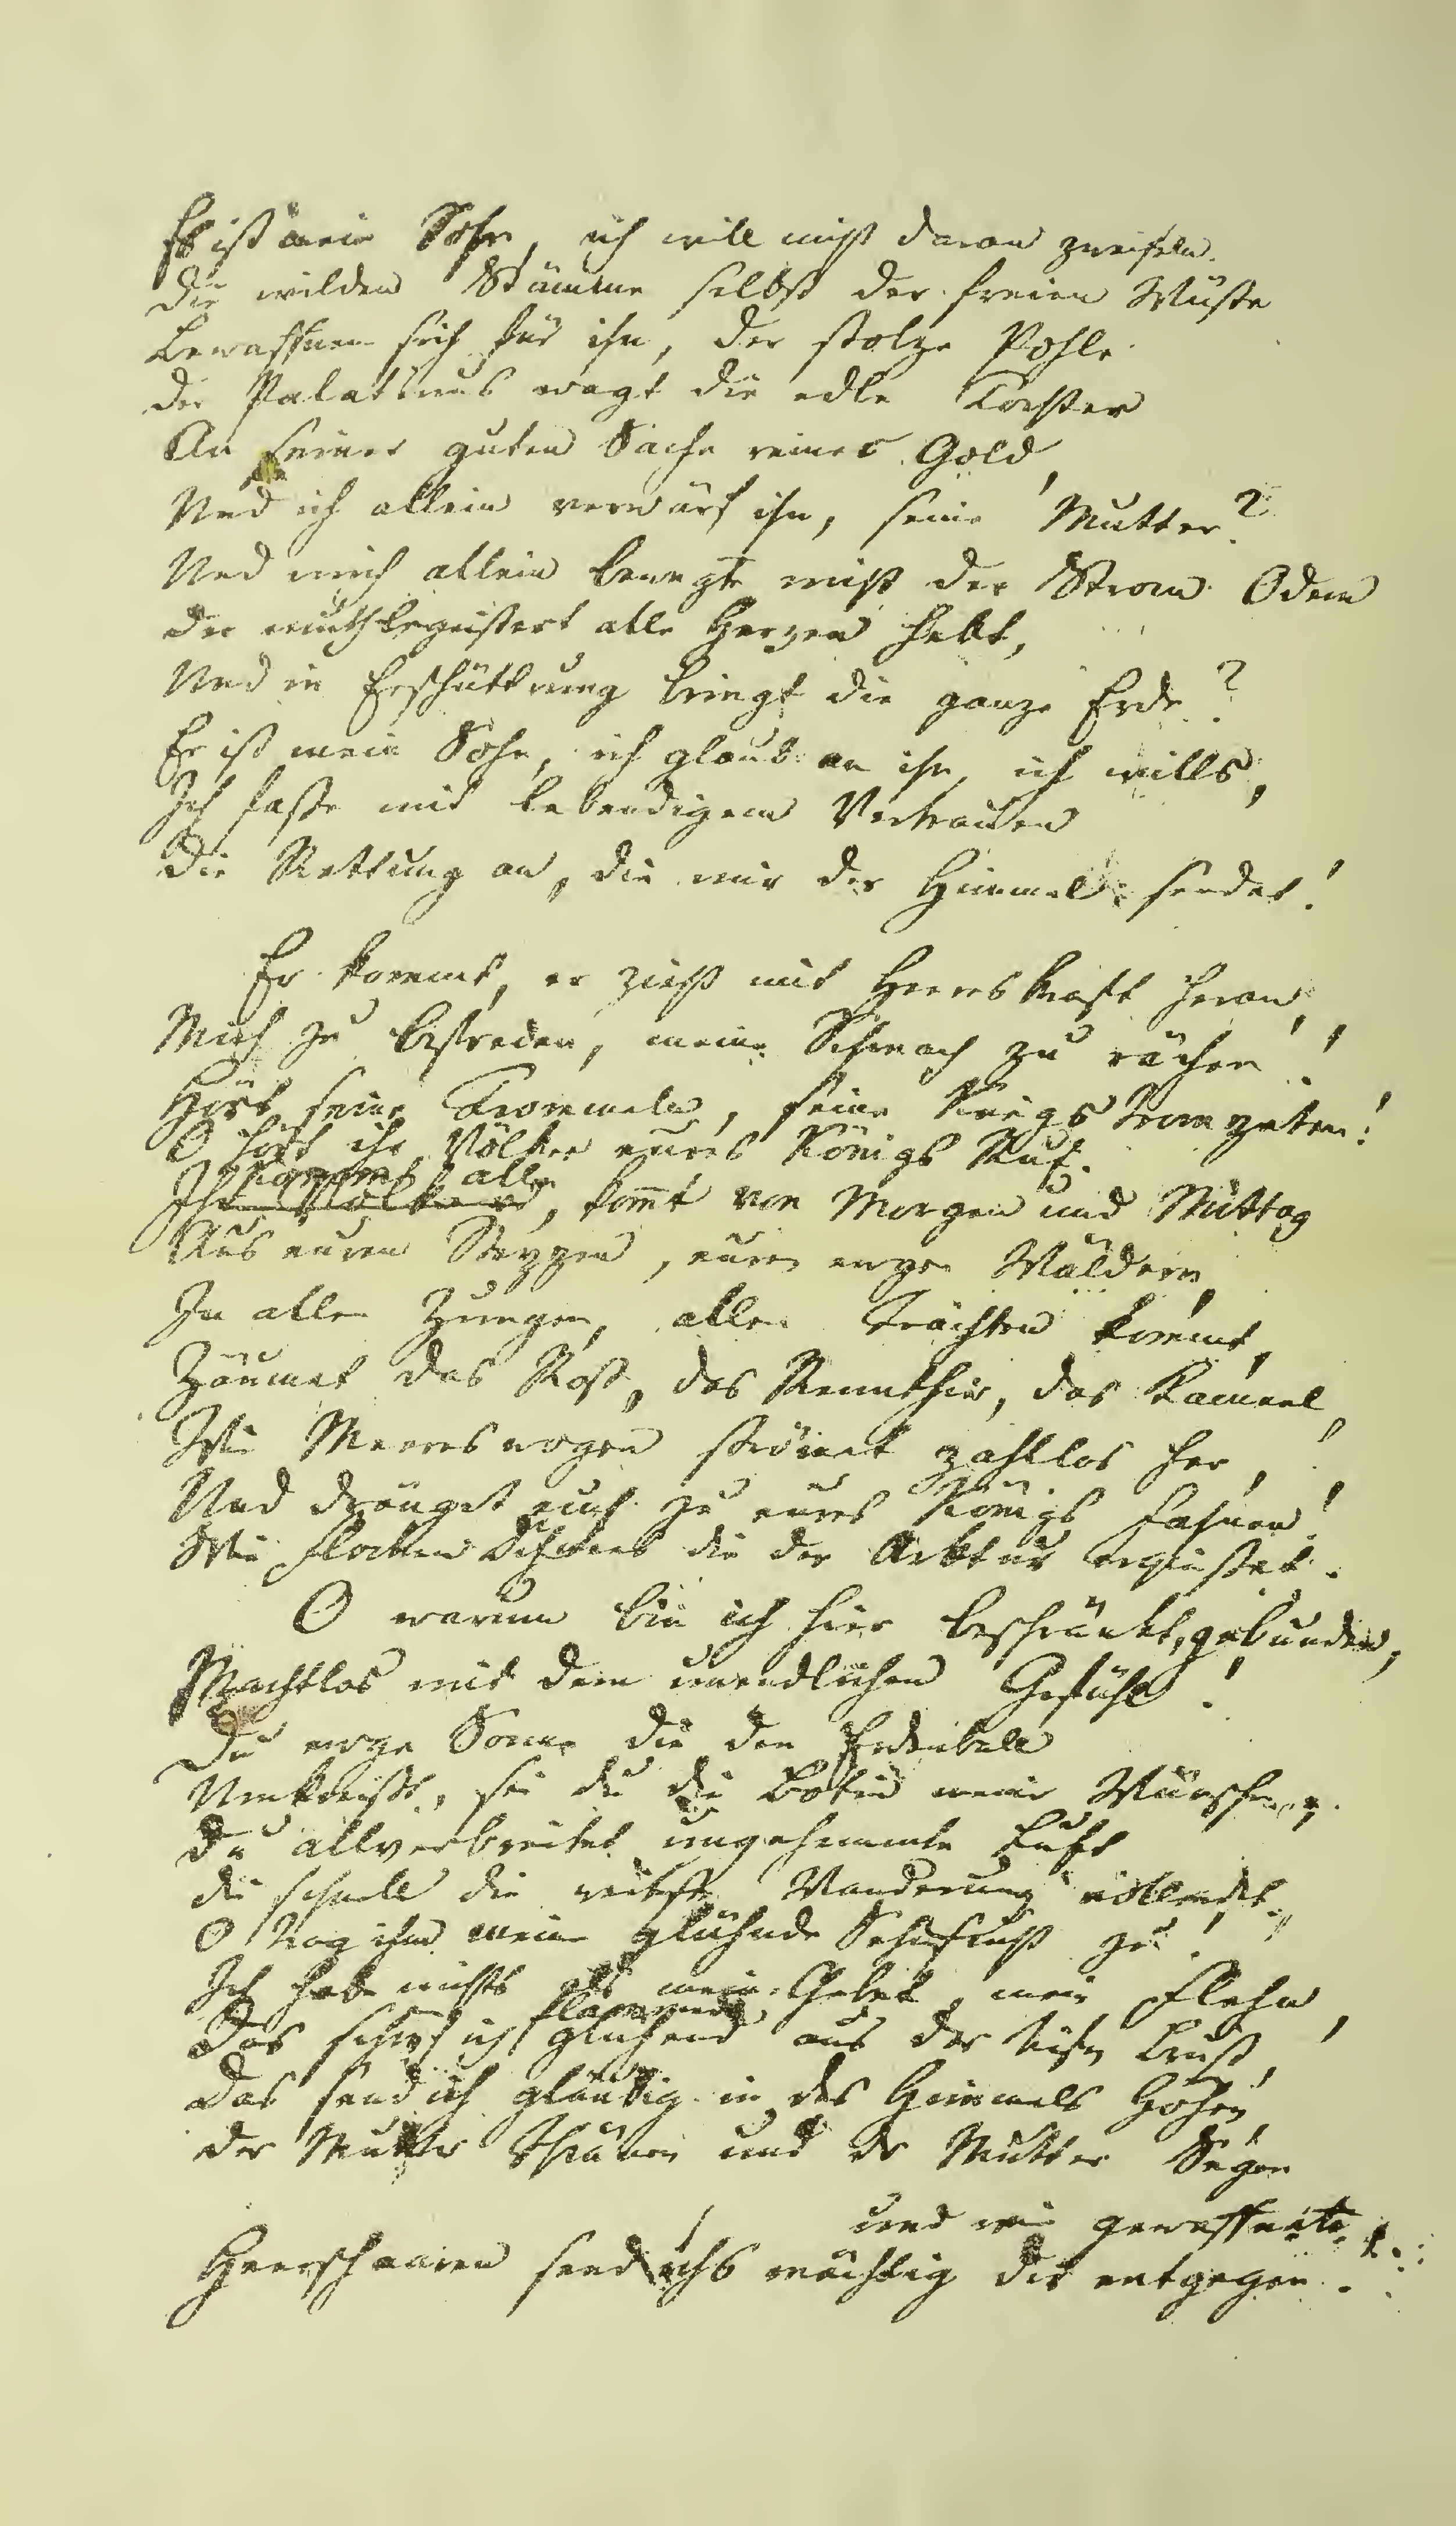 Es ist mein Sohn, ich will nicht daran zweifeln.
Die wilden Stämme selbst der freien Wüste
Bewaffnen sich für ihn, der stolze Pohle
Der Palatinus wagt die edle Tochter
An seiner guten Sache reines Gold,
Und ich allein verwärf ihn, seine Mutter?
Und mich allein bewegte nicht der Strom Odem
Der muthbegeistert alle Herzen hebt,
Und in Erschüttrung bringt die ganze Erde?
Er ist mein Sohn, ich glaub an ihn, ich wills,
Ich fasse mit lebendigem Vertrauen
Die Rettung an, die mir der Himmel sendet!
Er kommt, er zieht mit Heereskraft heran,
Mich zu befreden, meine Schmach zu rächen!
Hört seine Trommeln, seine Kriegstrompeten!
O hört ihr Völker eures Königs Ruf.
Kommt alle
Ihr Völker, kom̄t von Morgen und Mittag
Aus euren Steppen, euren ewgen Wäldern,
In allen Zungen, allen Trachten kommt,
Zäumet das Roß, das Rennthier, das Kameel,
Wie Meereswogen strömet zahllos her,
Und dränget euch zu eures Königs Fahnen!
Wie Flocken Schnees die der Arktur ergießet.
O warum bin ich hier beschränkt, gebunden,
Machtlos mit dem unendlichen Gefühl!
Du ewge Sonne die den Erdenball
Umkreißt, sei du die Botin meiner Wünsche,
Du allverbreitet ungehemmte Luft
die schnell die weitste Wanderung vollendet,
O trag ihm meine glühnde Sehnsucht zu!
Ich habe nichts als mein Gebet, mein Flehn,
flammend
Das schöpf ich glühend aus der tiefen Brust,
Das send ich gläubig in des Himmels Höhen,
der Mutter Thränen und der Mutter Segen
und wie gewaffnete
Heerschaaren send ichs mächtig dir entgegen.